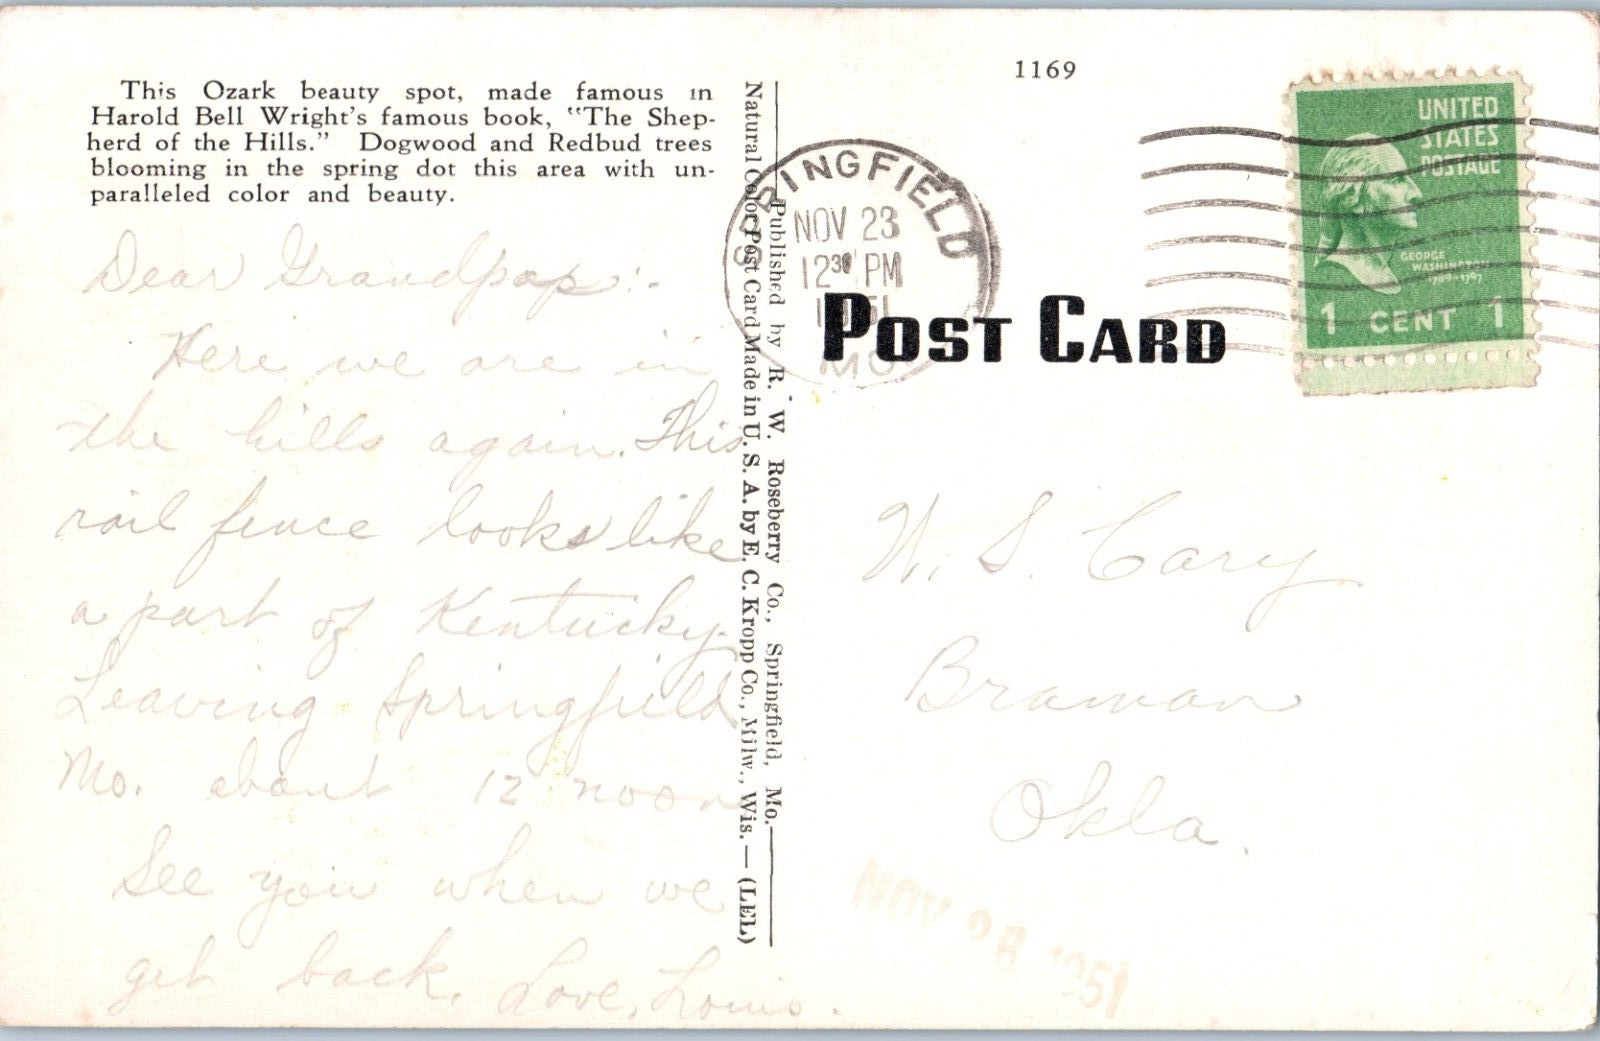 This Ozark beauty spot, made famous in
Harold Bell Wright's famous book, "The Shep-
herd of the Hills." Dogwood and Redbud trees
blooming in the spring dot this area with un-
paralleled color and beauty.
Dear Grandpap:-
Here we are in
the hills again. This
rail fence looks like
a part of Kentucky.
Leaving Springfield
Mo. about 12 noon
See you when we
get back. Love, Louis.
Natural Color Post Card Made in U. S. A. by E. C. Kropp Co., Milw., Wis. — (LEL)
Published by R. W. Roseberry Co., Springfield, Mo.
1169
SPRINGFIELD
NOV 23
12 30 PM
1951
MO
POST CARD
UNITED
STATES
POSTAGE
GEORGE
WASHINGTON
1789-1797
1 CENT 1
W. S. Cary
Braman
Okla.
NOV 26 1951